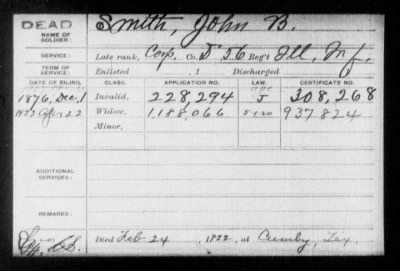 DEAD
NAME OF SOLDIER:
Smith, John B.
SERVICE:
Late rank, Corp. Co. D 56 Reg't Ill. Inf.
TERM OF SERVICE:
Enlisted 1 Discharged 1
DATE OF FILING. CLASS. APPLICATION NO. LAW. CERTIFICATE NO.
1876, Dec. 1 Invalid, 228,294 J 308,268
1922 Apr 22 Widow, 1,188,066 5/1/20 937824
Minor,
ADDITIONAL SERVICES:
REMARKS:
Died Feb 24, 1922, at Cumby, Tex.